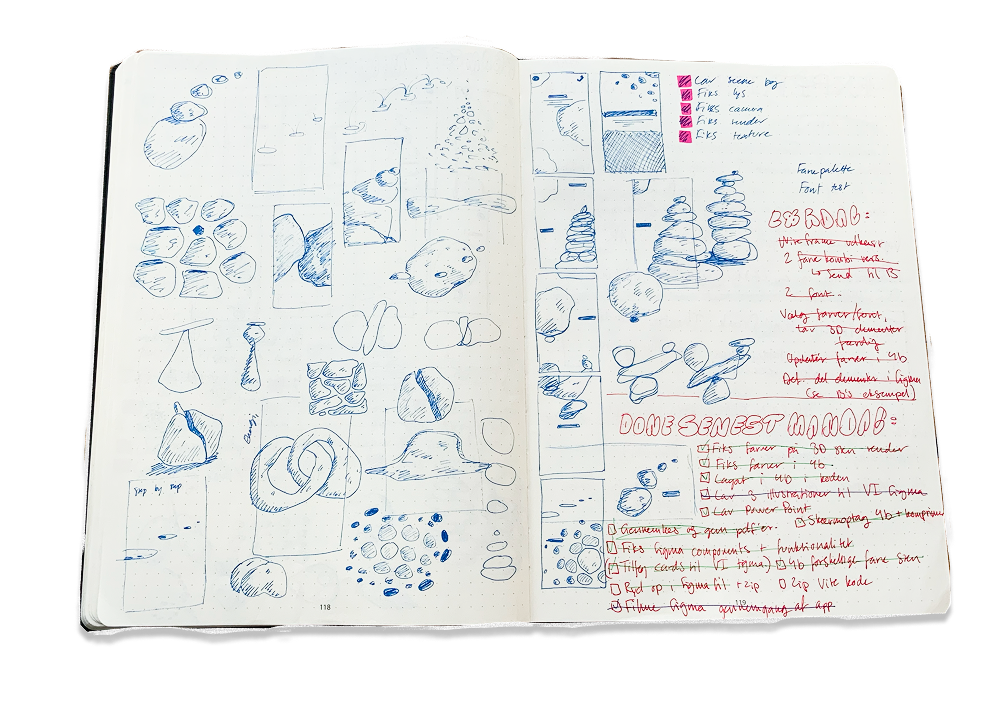 Energi
Step by step
118
Lav scene bg
Fiks lys
Fiks camera
Fiks render
Fiks texture
Farvepalette
Font test
Wireframe udkast
2 farve kombi vers.
↳ send til B
2 font.
Vælg farver/font,
Lav 3D elementer
færdig
Opdater farver i 4b
Del. del elementer i figma
(se B's eksempel)
DONE SENEST MANDAG:
Fiks farver på 3D sten render
Fiks farver i 4b.
Lagat i 4D i koden
Lav 3 illustrationer til VI figma
Lav Power Point
Gennemlæs og gem pdf'er.
Skærmoptag 4b + komprimer
Fiks figma components + funktionalitet
Tilføj cards til VI figma.
4b forskellige farve sten
Ryd op i figma fil + zip
Zip Vite kode
Filme figma gennemgang af app
119